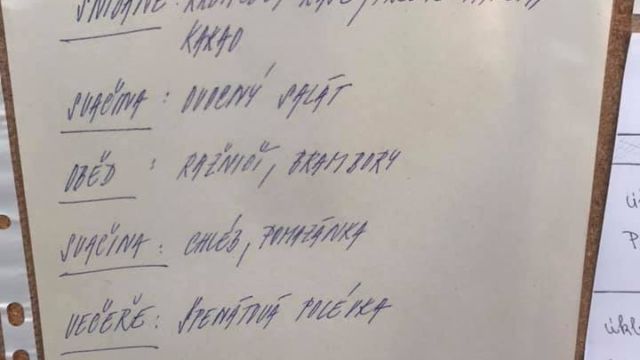 SNÍDANĚ:
KAKAO
SVAČINA: OVOCNÝ SALÁT
OBĚD: RAŽNIČÍ, BRAMBORY
SVAČINA: CHLÉB, POMAZÁNKA
VEČEŘE: ŠPENÁTOVÁ POLÉVKA